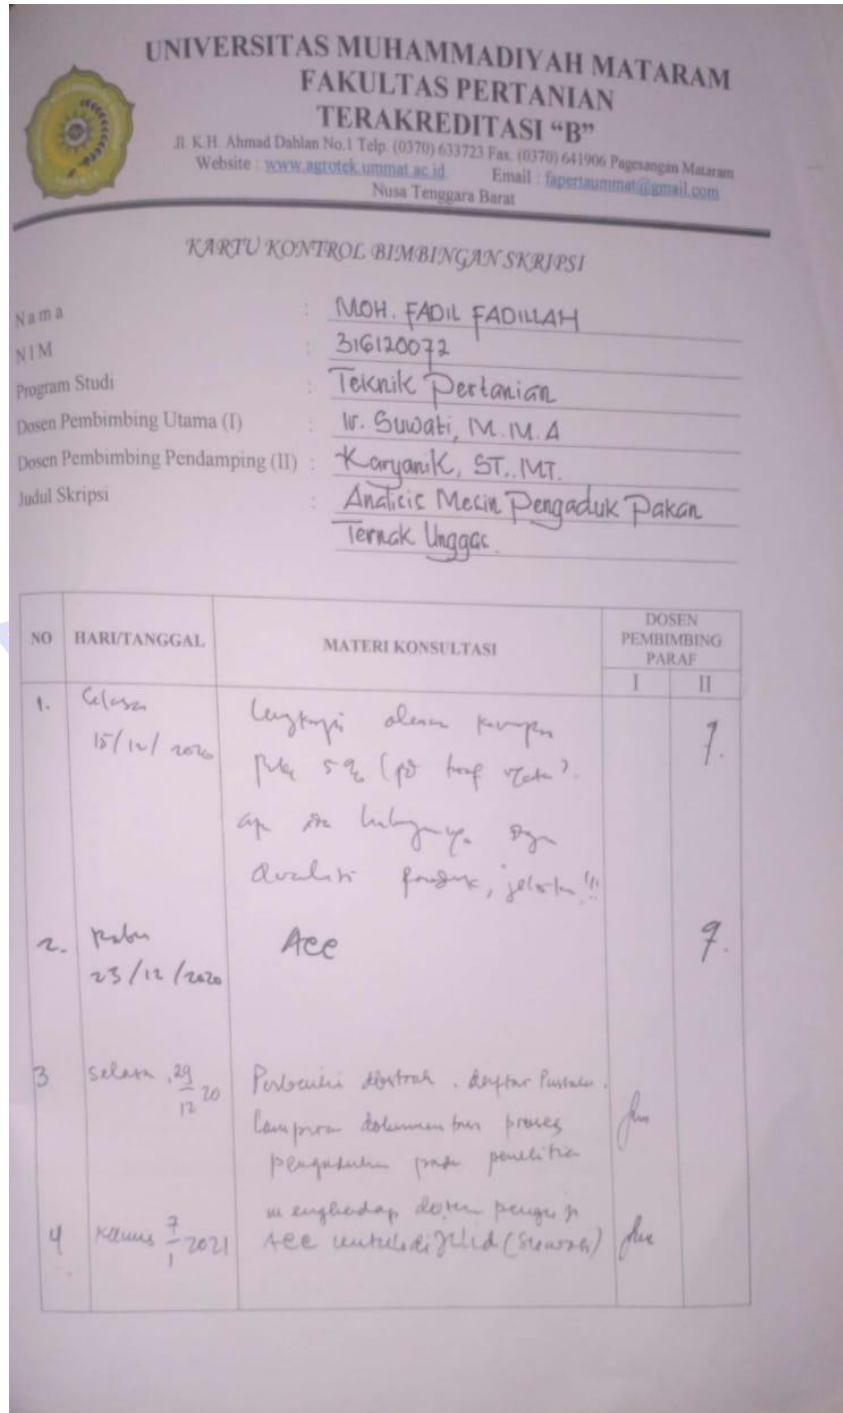 UNIVERSITAS MUHAMMADIYAH MATARAM
FAKULTAS PERTANIAN
TERAKREDITASI “B”
Jl. K.H. Ahmad Dahlan No.1 Telp. (0370) 633723 Fax. (0370) 641906 Pagesangan Mataram
Website : www.agrotek.ummat.ac.id Email : fapertaummat@gmail.com
Nusa Tenggara Barat
KARTU KONTROL BIMBINGAN SKRIPSI
Nama : MOH. FADIL FADILLAH
NIM : 316120072
Program Studi : Teknik Pertanian
Dosen Pembimbing Utama (I) : Ir. Suwati, M.M.A
Dosen Pembimbing Pendamping (II) : Karyanik, ST., MT.
Judul Skripsi : Analisis Mesin Pengaduk Pakan
Ternak Unggas
NO HARI/TANGGAL MATERI KONSULTASI DOSEN PEMBIMBING PARAF
I II
1. Selasa
15/12/2020
5%
produk, jelaskan!!!
2. Rabu Acc
23/12/2020
3 Selasa, 29/12 20 Perbaiki abstrak, daftar Pustaka,
Lampiran dokumentasi proses
pengadukan pada penelitian
menghadap dosen penguji
4 Kamis 7/1 2021 Acc untuk dijilid (Suwati)